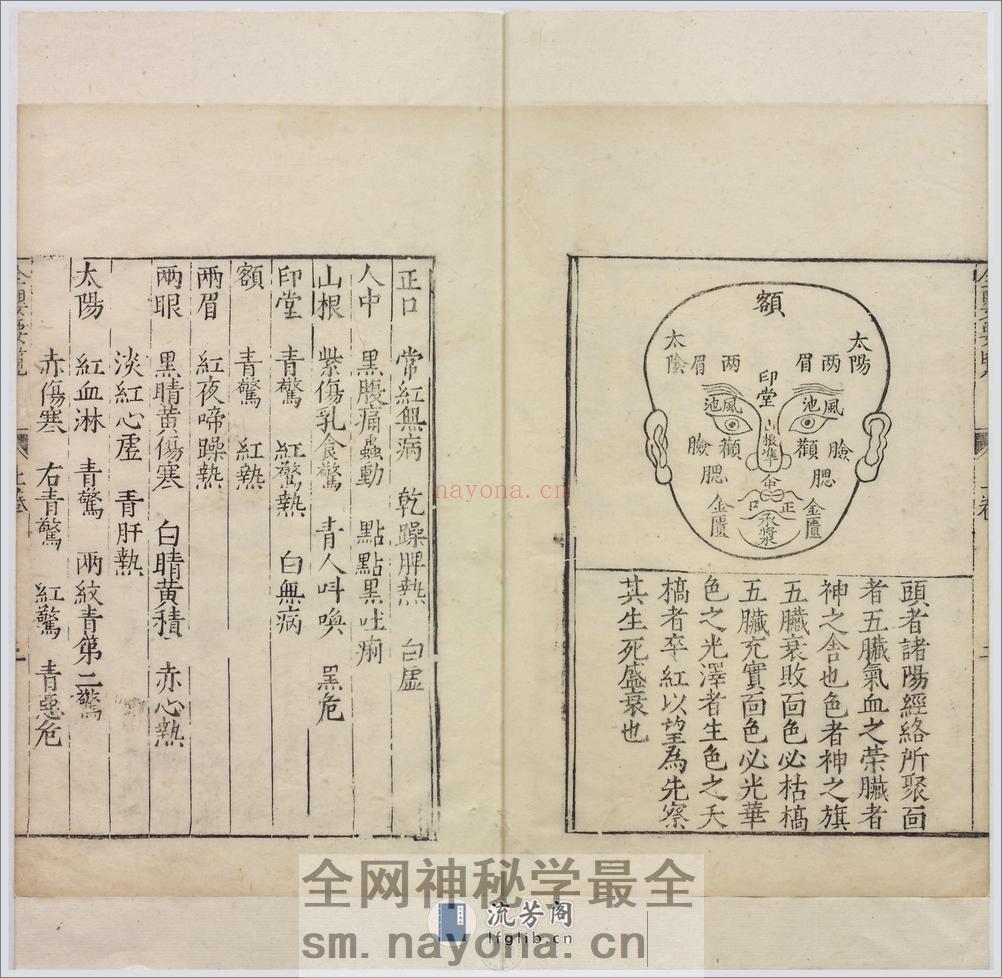 額
太陽
太陰
兩眉
兩眉
印堂
風池
風池
山根
準
顴
顴
臉
臉
腮
腮
中
正口
金匱
金匱
承漿
頭者諸陽經絡所聚面
者五臟氣血之榮臟者
神之舍也色者神之旗
五臟衰敗面色必枯槁
五臟充實面色必光華
色之光澤者生色之夭
槁者卒紅以望為先察
其生死盛衰也
正口 常紅無病 乾躁脾熱 白虛
人中 黑腹痛蟲動 點點黑吐痢
山根 紫傷乳食驚 青人呌喚 黑危
印堂 青驚 紅驚熱 白無病
額 青驚 紅熱
兩眉 紅夜啼躁熱
兩眼 黑睛黃傷寒 白睛黃積 赤心熱
淡紅心虛 青肝熱
太陽 紅血淋 青驚 兩紋青第二驚
赤傷寒 右青驚 紅驚 青惡危
nayona.cn
全网神秘学最全
流芳阁
lfglib.cn
sm.nayona.cn